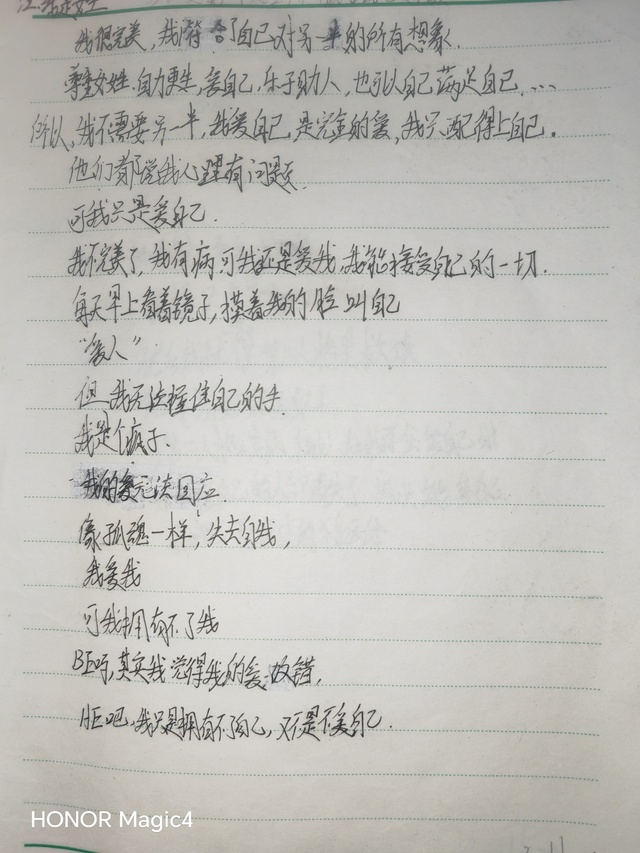 我很完美，我符合了自己对另一半的所有想象.
尊重女性.自力更生，爱自己，乐于助人，也可以自己满足自己....
所以，我不需要另一半，我爱自己，是完全的爱，我只配得上自己。
他们都说我心理有问题.
可我只是爱自己.
我不完美了，我有病，可我还是爱我，我能接受自己的一切.
每天早上看着镜子，摸着我的脸叫自己
“爱人”.
但，我无法握住自己的手.
我是个疯子.
我的爱无法回应.
像孤魂一样，失去自我，
我爱我
可我拥有不了我
BE吗，其实我觉得我的爱没错，
HE吧，我只是拥有不了自己，又不是不爱自己.
HONOR Magic4